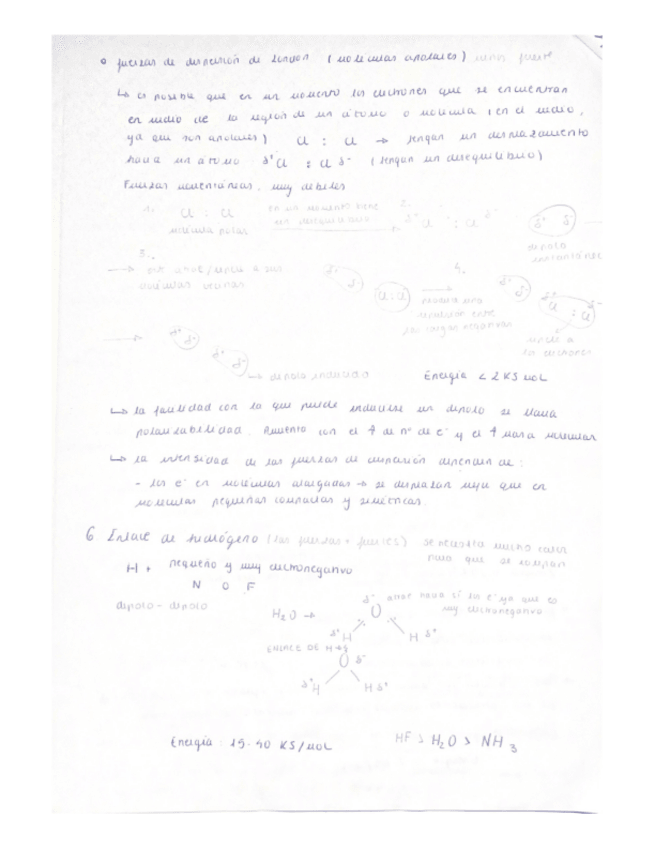 fuerzas de dispersión de London (moléculas apolares) menos fuerte
↳ es posible que en un momento los electrones que se encuentran
en medio de la región de un átomo o molécula (en el medio,
ya que son apolares) Cl : Cl → tengan un desplazamiento
hacia un átomo δ⁺Cl : Cl δ⁻ (tengan un desequilibrio)
Fuerzas momentáneas, muy débiles
1. Cl : Cl en un momento tiene un desequilibrio 2. δ⁺ Cl : Cl δ⁻ δ⁺ δ⁻
molécula polar
dipolo
instantáneo
3.
→ este atrae/repele a sus
moléculas vecinas
δ⁺ δ⁻
Cl : Cl
4.
repulsión entre
las cargas negativas
δ⁺ δ⁻
δ⁺ Cl : Cl δ⁻
repele a
los electrones
→ δ⁺ δ⁻ δ⁺ δ⁻
→ dipolo inducido Energía < 2 KJ mol
↳ la facilidad con la que puede inducirse un dipolo se llama
polarizabilidad. Aumenta con el ↑ de nº de e⁻ y el ↑ masa molecular
↳ la intensidad de las fuerzas de dispersión dependen de:
- los e⁻ en moléculas alargadas → se desplazan mejor que en
moléculas pequeñas compactas y simétricas.
6. Enlace de hidrógeno (las fuerzas + fuertes) se necesita mucho calor
para que se rompan
H + pequeño y muy electronegativo
N O F
dipolo - dipolo
δ⁻ atrae hacia sí los e⁻ ya que es
muy electronegativo
H₂O → O
δ⁺ H H δ⁺
ENLACE DE H
O δ⁻
δ⁺ H H δ⁺
Energía : 15-40 KJ/mol HF > H₂O > NH₃